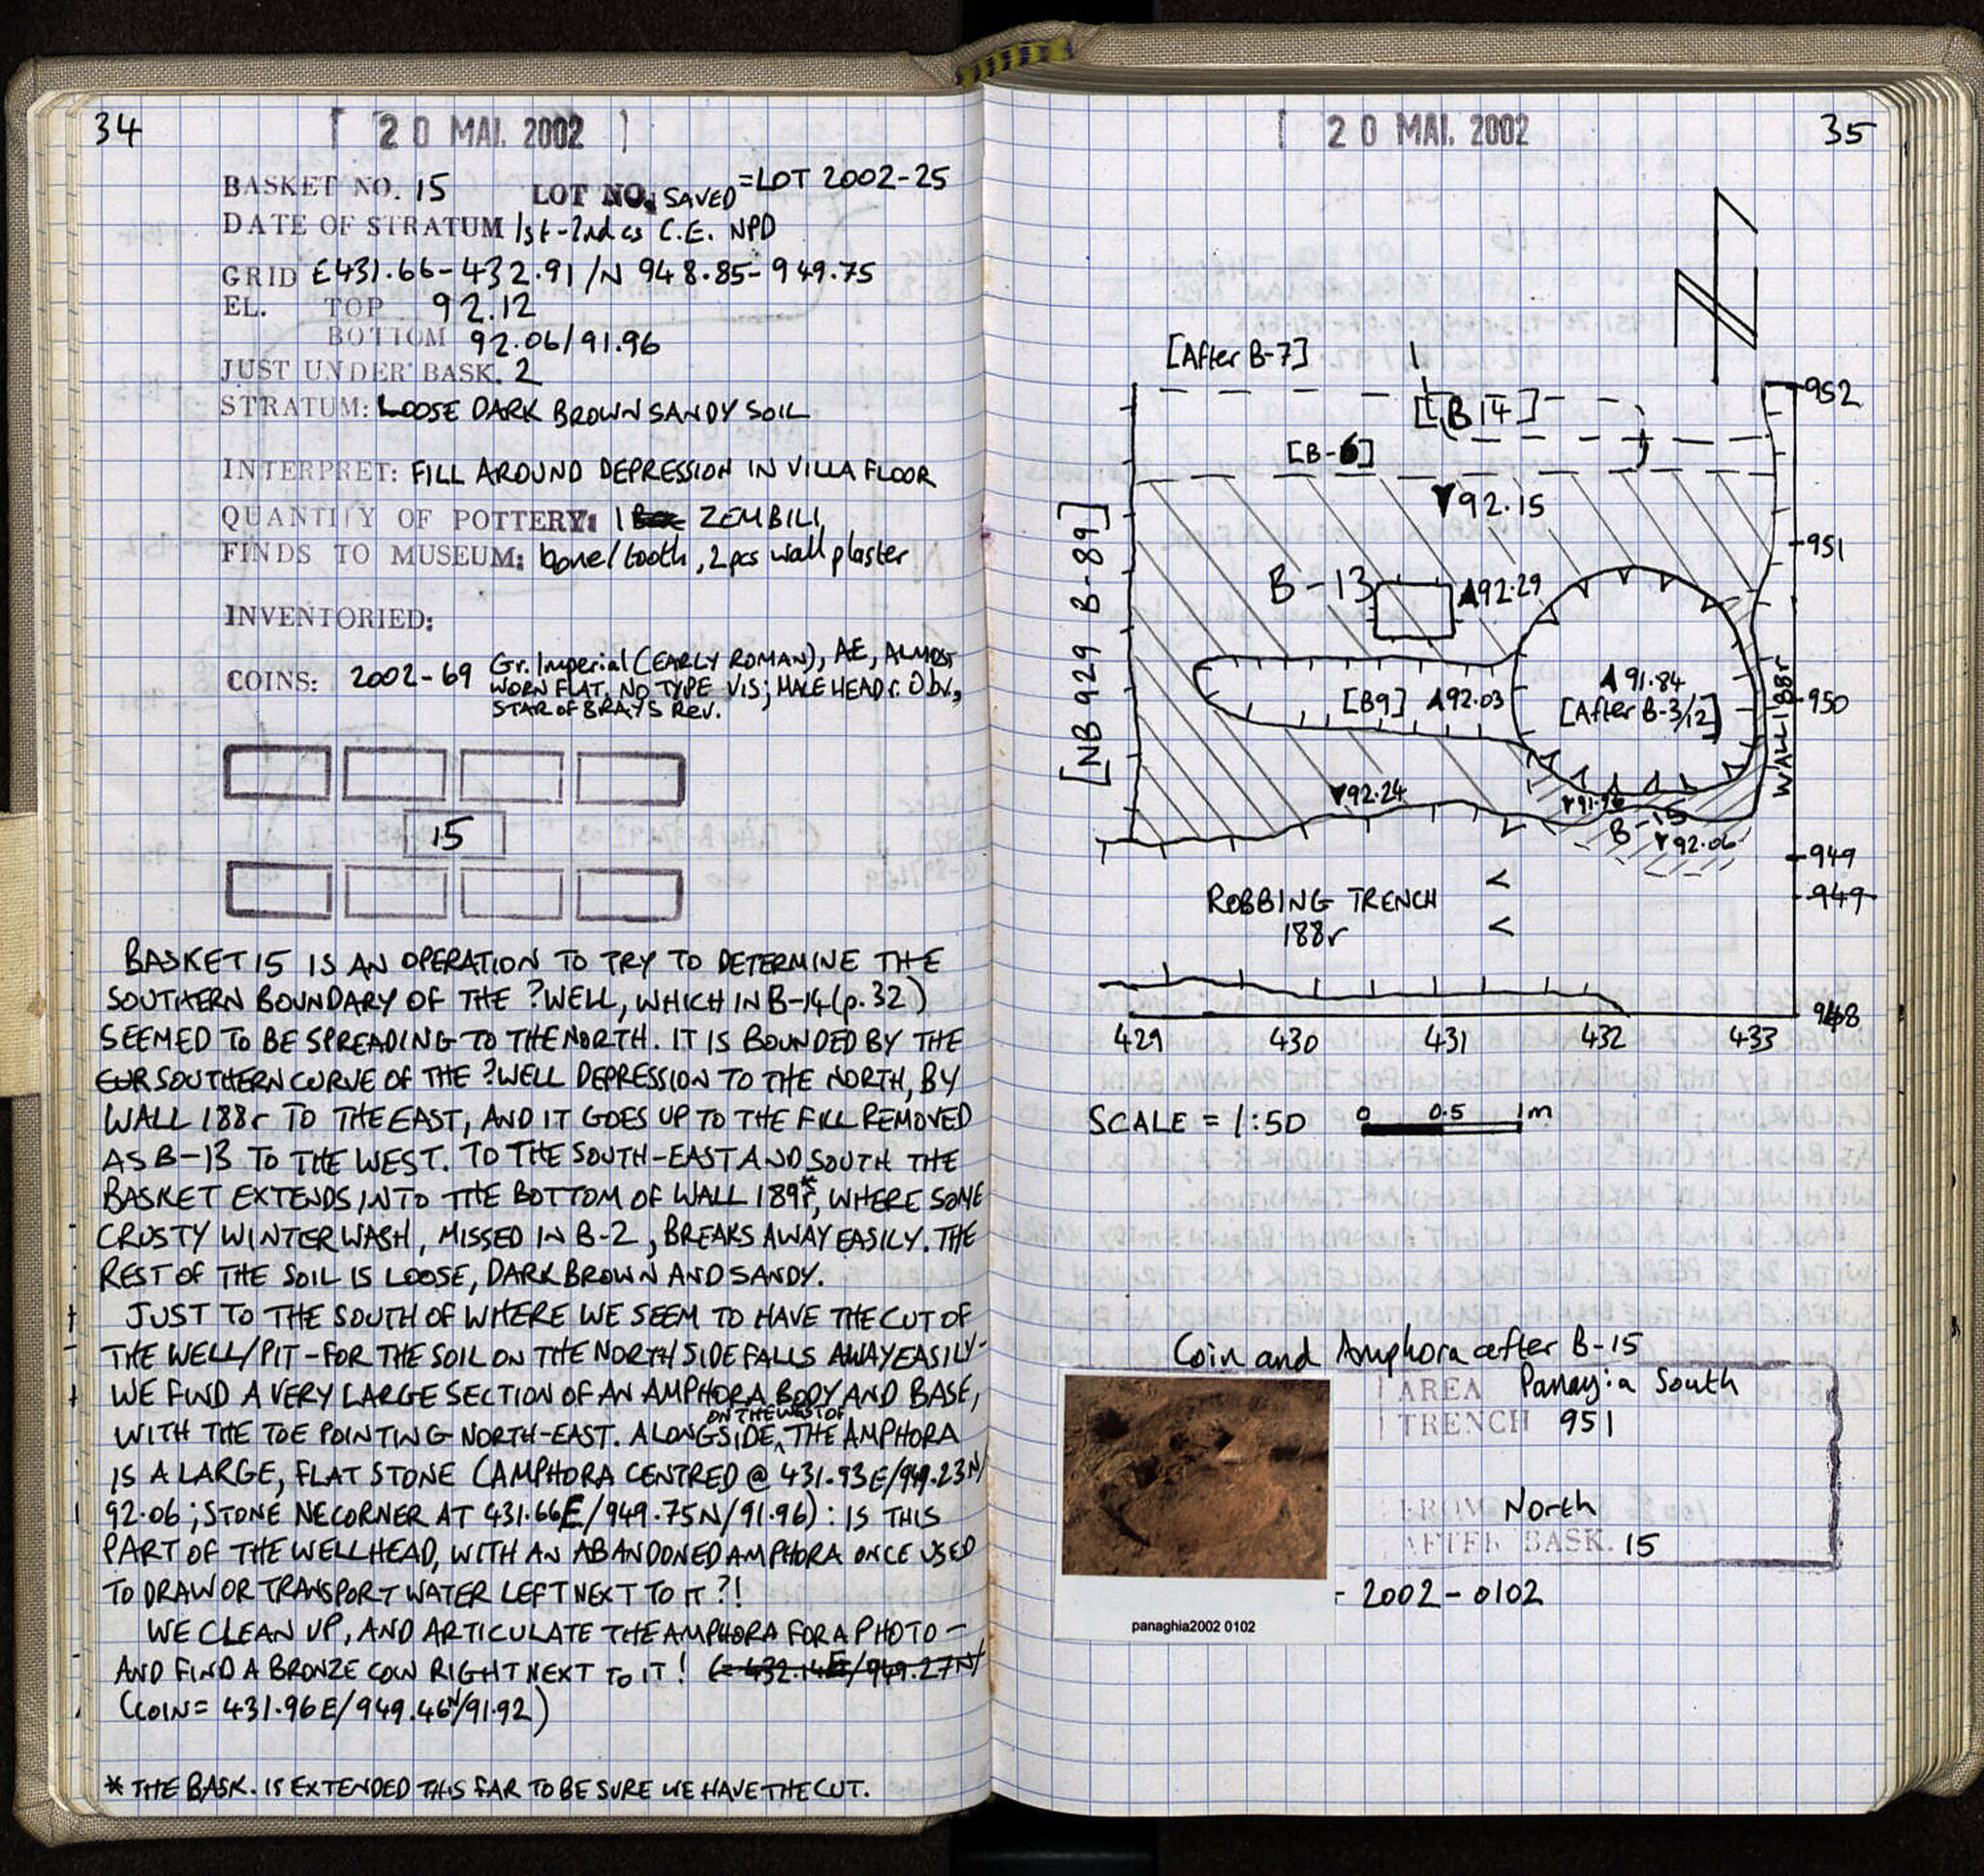 34
20 MAI. 2002
BASKET NO. 15 LOT NO. SAVED =LOT 2002-25
DATE OF STRATUM 1st-2nd cs C.E. NPD
GRID E431.66-432.91/N 948.85-949.75
EL. TOP 92.12
BOTTOM 92.06/91.96
JUST UNDER BASK. 2
STRATUM: LOOSE DARK BROWN SANDY SOIL
INTERPRET: FILL AROUND DEPRESSION IN VILLA FLOOR
QUANTITY OF POTTERY: 1 ZEMBILI
FINDS TO MUSEUM: bone/tooth, 2 pcs wall plaster
INVENTORIED:
COINS: 2002-69 Gr. Imperial (EARLY ROMAN), AE, ALMOST
WORN FLAT. NO TYPE VIS; MALE HEAD r. Obv.,
STAR OF 8 RAYS Rev.
15
BASKET 15 IS AN OPERATION TO TRY TO DETERMINE THE
SOUTHERN BOUNDARY OF THE ?WELL, WHICH IN B-14 (p.32)
SEEMED TO BE SPREADING TO THE NORTH. IT IS BOUNDED BY THE
CUR SOUTHERN CURVE OF THE ?WELL DEPRESSION TO THE NORTH, BY
WALL 188r TO THE EAST, AND IT GOES UP TO THE FILL REMOVED
AS B-13 TO THE WEST. TO THE SOUTH-EAST AND SOUTH THE
BASKET EXTENDS INTO THE BOTTOM OF WALL 189r*, WHERE SOME
CRUSTY WINTER WASH, MISSED IN B-2, BREAKS AWAY EASILY. THE
REST OF THE SOIL IS LOOSE, DARK BROWN AND SANDY.
JUST TO THE SOUTH OF WHERE WE SEEM TO HAVE THE CUT OF
THE WELL/PIT - FOR THE SOIL ON THE NORTH SIDE FALLS AWAY EASILY -
WE FIND A VERY LARGE SECTION OF AN AMPHORA BODY AND BASE,
WITH THE TOE POINTING NORTH-EAST. ALONGSIDE, ON THE WEST OF THE AMPHORA
IS A LARGE, FLAT STONE (AMPHORA CENTRED @ 431.93E/949.23N/
92.06; STONE NE CORNER AT 431.66E/949.75N/91.96): IS THIS
PART OF THE WELLHEAD, WITH AN ABANDONED AMPHORA ONCE USED
TO DRAW OR TRANSPORT WATER LEFT NEXT TO IT?!
WE CLEAN UP, AND ARTICULATE THE AMPHORA FOR A PHOTO -
AND FIND A BRONZE COIN RIGHT NEXT TO IT! (= 432.14E/949.27N/
(COIN = 431.96E/949.46N/91.92)
* THE BASK. IS EXTENDED THIS FAR TO BE SURE WE HAVE THE CUT.
20 MAI. 2002
35
[After B-7]
952
[B 14]
[B-6]
92.15
951
[NB 929 B-89]
B-13
92.29
91.84
[B9] 92.03
[After B-3/12]
950
WALL 188r
92.24
91.96
B-15
92.06
949
949
ROBBING TRENCH
188r
948
429 430 431 432 433
SCALE = 1:50
0 0.5 1m
Coin and Amphora after B-15
AREA Panayia South
TRENCH 951
FROM North
AFTER BASK. 15
- 2002-0102
panaghia2002 0102